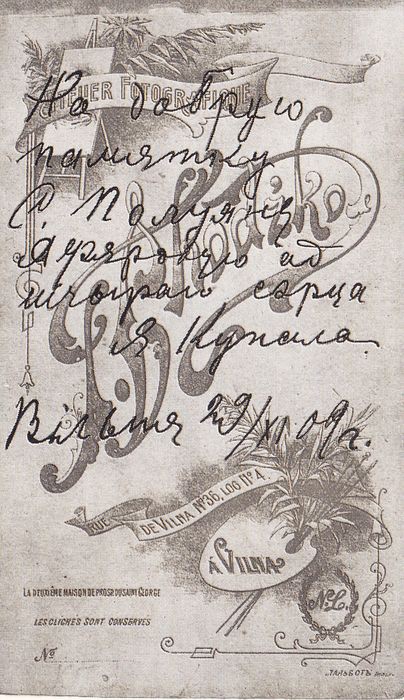 ATELIER FOTOGRAFIQUE
На добрую
памятку
С. Палуяну
Афяровую ад
шчыраго сэрца
Я Купала.
Вільня 29/XI 09 г.
RUE DE VILNA Nº 36, LOG Nº 4.
À VILNA
N.L.
LA DEUXIÈME MAISON DE PROSP. DU SAINT GEORGE
LES CLICHÉS SONT CONSERVÉS
Nº